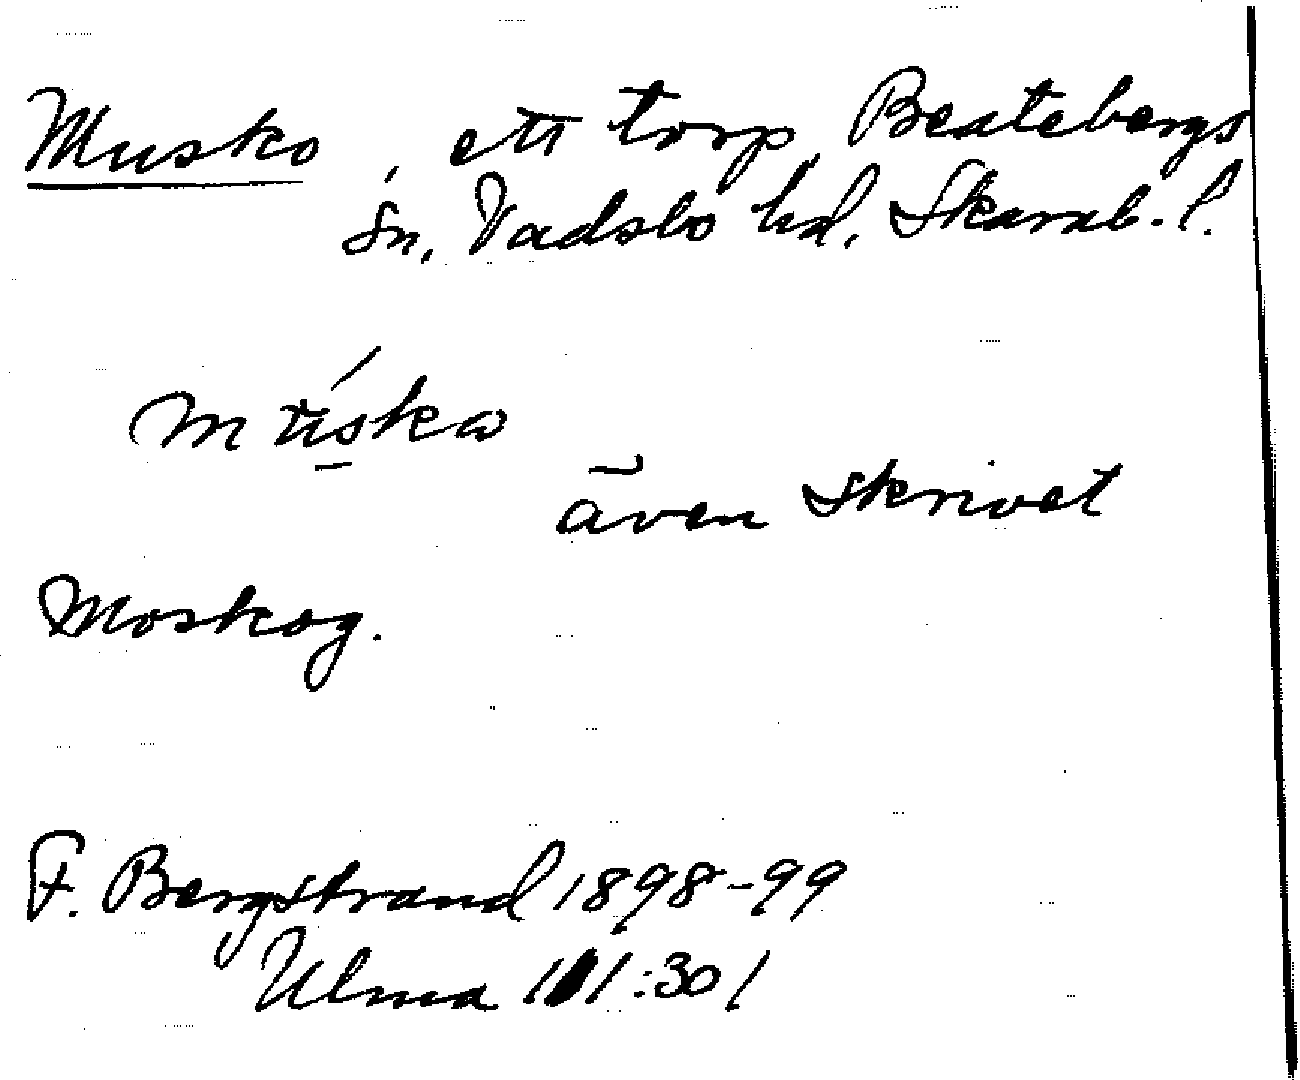 Musko, ett torp Beatebergs
sn, Vadsbo hd, Skarab. l.
även skrivet
Moskog.
F. Bergstrand 1898-99
Ulma 111:301